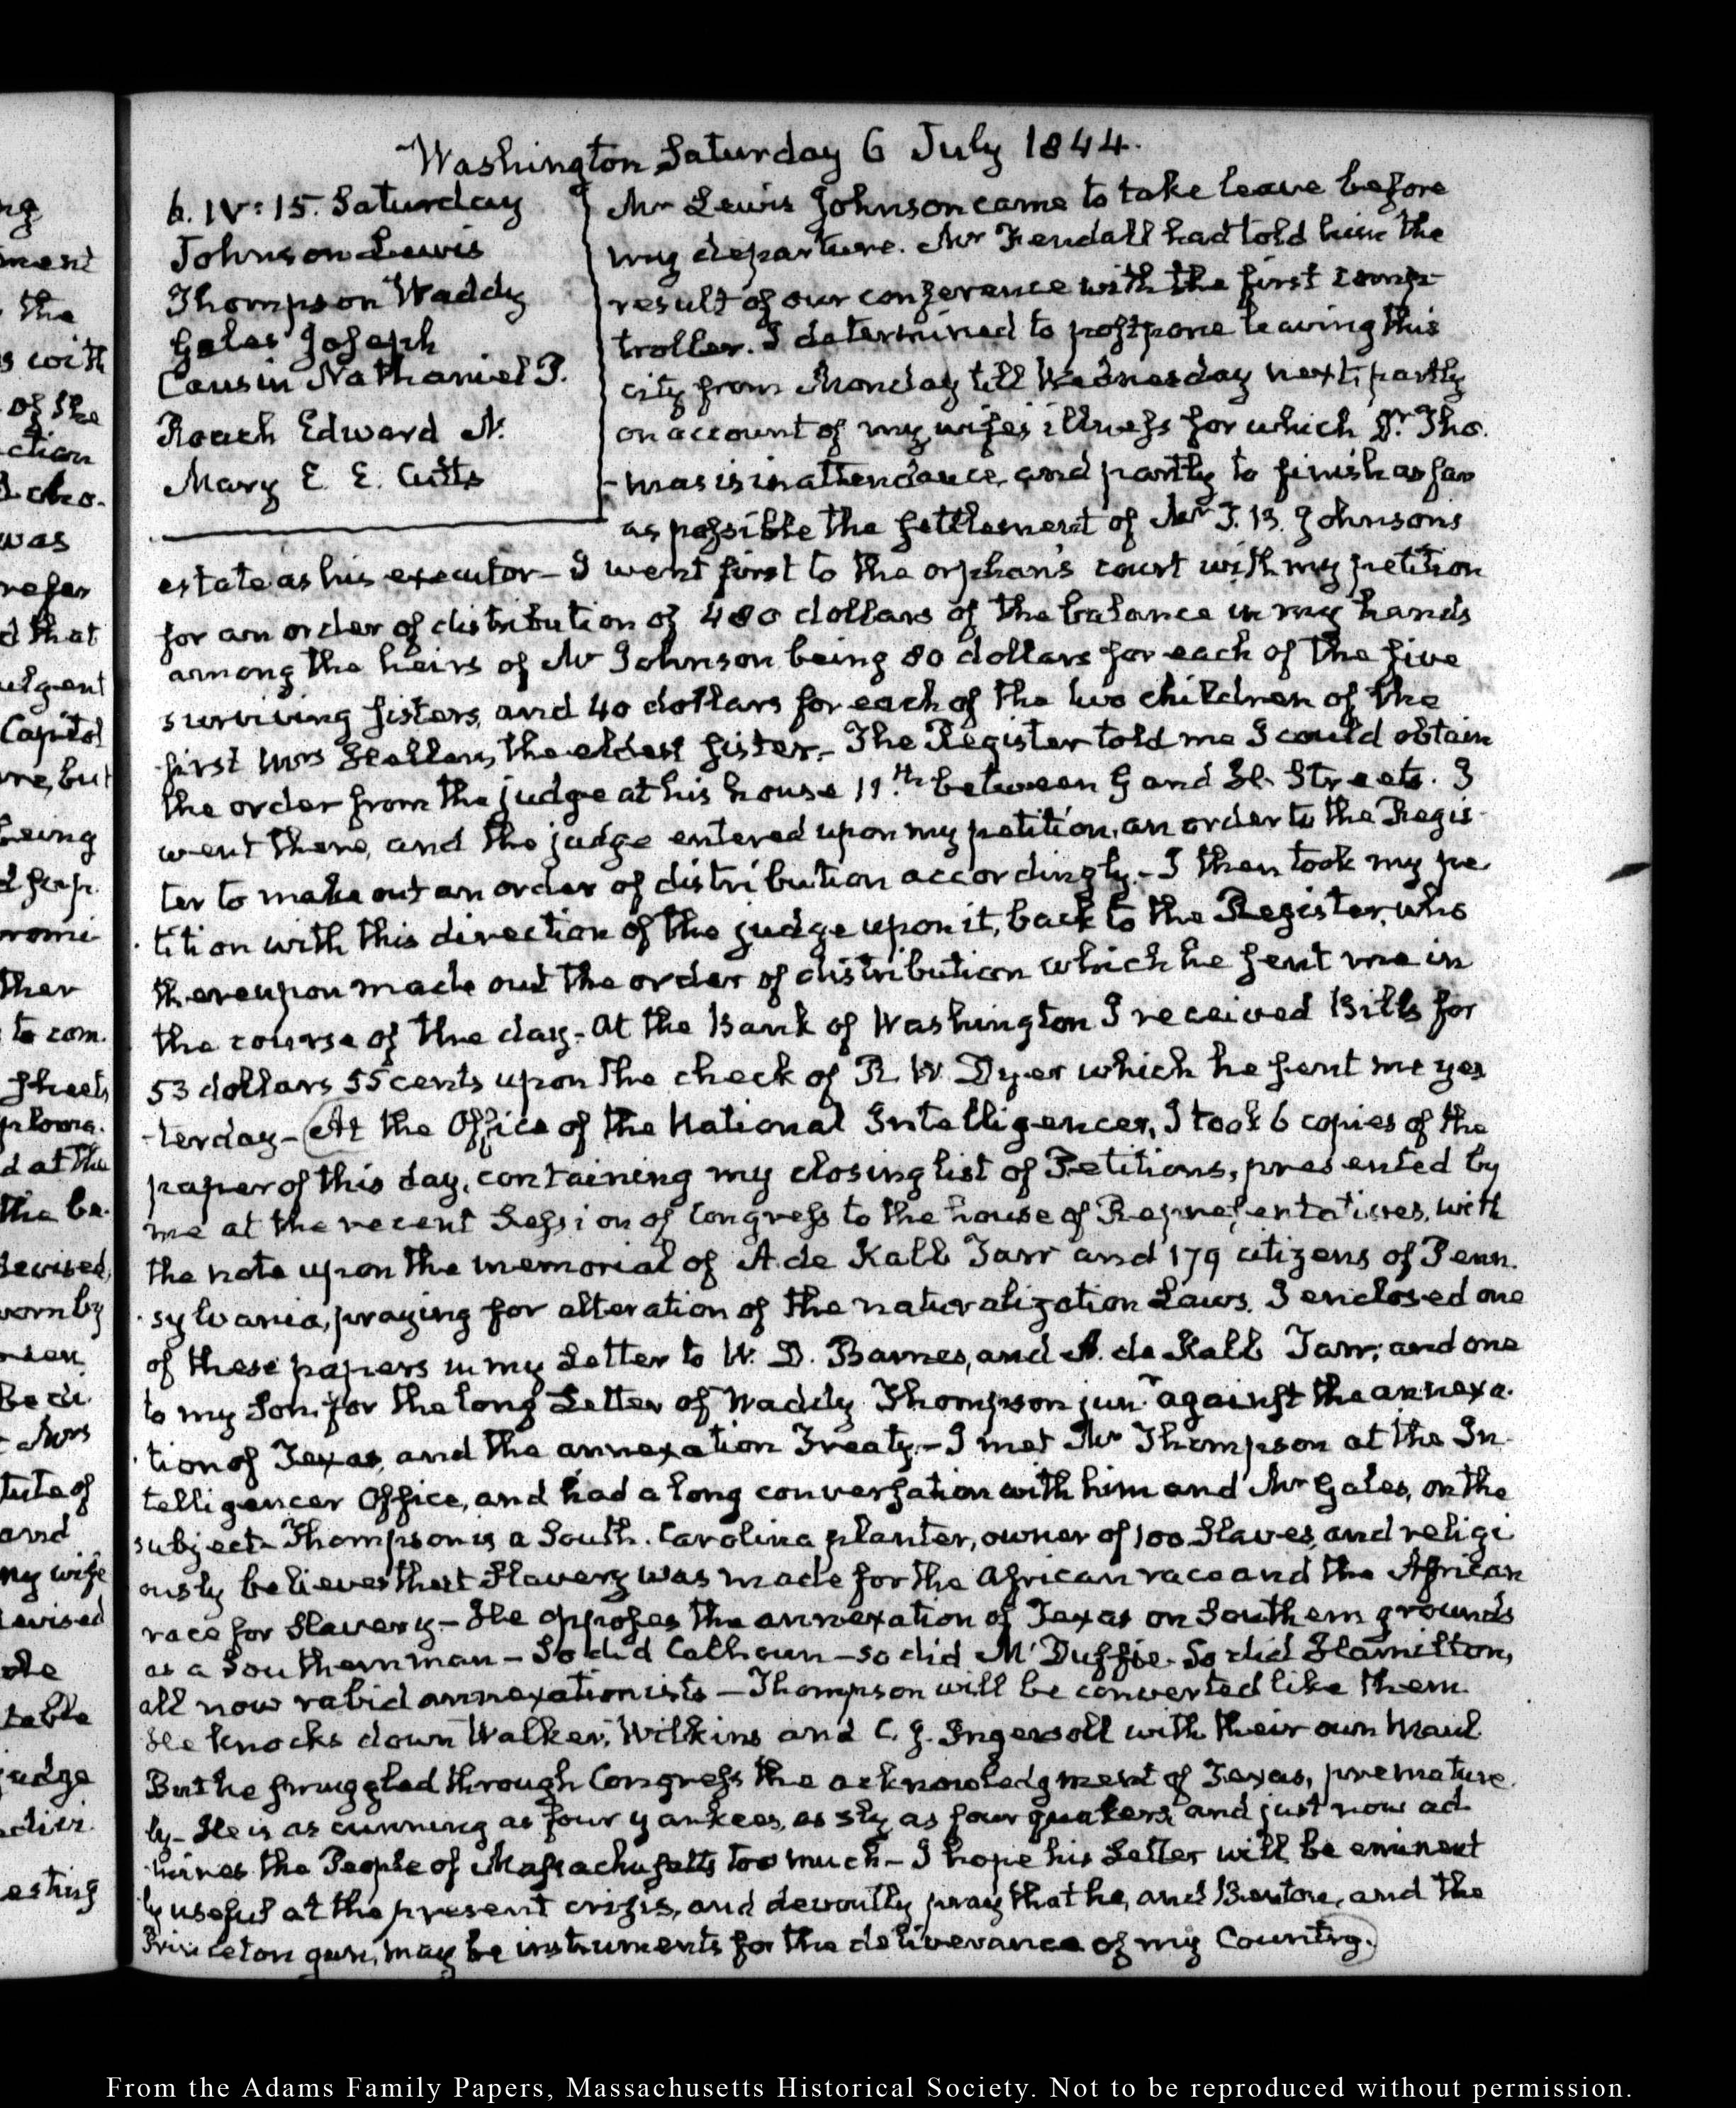 ng
ment
the
s with
of the
ction
d cho-
was
refer
d that
ulgent
Capitol
re, but
being
d
romi
ther
to com.
sheets
d at the
the be-
devised,
worn by
be di
Mrs
tute of
and
my wife
devised
table
judge
esting
Washington Saturday 6 July 1844.
6. IV: 15. Saturday
Johnson Lewis
Thompson Waddy
Gales Joseph
Causin Nathaniel P.
Roach Edward N.
Mary E. E. Cutts
Mr Lewis Johnson came to take leave before
my departure. Mr Kendall had told him the
result of our conference with the first comp-
troller. I determined to postpone leaving this
city from Monday till Wednesday next, partly
on account of my wife's illness for which Dr. Tho-
-mas is in attendance, and partly to finish as far
as possible the settlement of Mr T. B. Johnsons
estate as his executor- I went first to the orphan's court with my petition
for an order of distribution of 480 dollars of the balance in my hands
among the heirs of Mr Johnson being 80 dollars for each of the five
surviving sisters, and 40 dollars for each of the two children of the
first Mrs Hellen, the eldest sister- The Register told me I could obtain
the order from the judge at his house 11th between G and H Streets. I
went there, and the judge entered upon my petition, an order to the Regis-
ter to make out an order of distribution accordingly.- I then took my pe
-tition with this direction of the judge upon it, back to the Register, who
thereupon made out the order of distribution which he sent me in
the course of the day- At the Bank of Washington I received Bills for
53 dollars 55 cents upon the check of R. W. Dyer which he sent me yes
-terday- (At the Office of the National Intelligencer, I took 6 copies of the
paper of this day, containing my closing list of Petitions, presented by
me at the recent Session of Congress to the house of Representatives, with
the note upon the memorial of A. de Kalb Tarr and 179 citizens of Penn-
-sylvania, praying for alteration of the naturalization Laws. I enclosed one
of these papers in my Letter to W. D. Barnes, and A. de Kalb Tarr; and one
to my Son, for the long Letter of Waddy Thompson junr against the annexa-
-tion of Texas, and the annexation Treaty.- I met Mr Thompson at the In-
telligencer Office, and had a long conversation with him and Mr Gales, on the
subject- Thompson is a South. Carolina planter, owner of 100 Slaves, and religi
ously believes that Slavery was made for the African race and the African
race for Slavery- He opposes the annexation of Texas on Southern grounds
as a Southern man- So did Calhoun- so did McDuffie- So did Hamilton,
all now rabid annexationists- Thompson will be converted like them.
He knocks down Walker, Wilkins and C. J. Ingersoll with their own maul
But he smuggled through Congress the acknowledgment of Texas, premature-
ly- He is as cunning as four yankees, as sly as four quakers, and just now ad-
mires the People of Massachusetts too much- I hope his Letter will be eminent
ly useful at the present crisis, and devoutly pray that he, and Benton, and the
Princeton gun, may be instruments for the deliverance of my Country.)
From the Adams Family Papers, Massachusetts Historical Society. Not to be reproduced without permission.